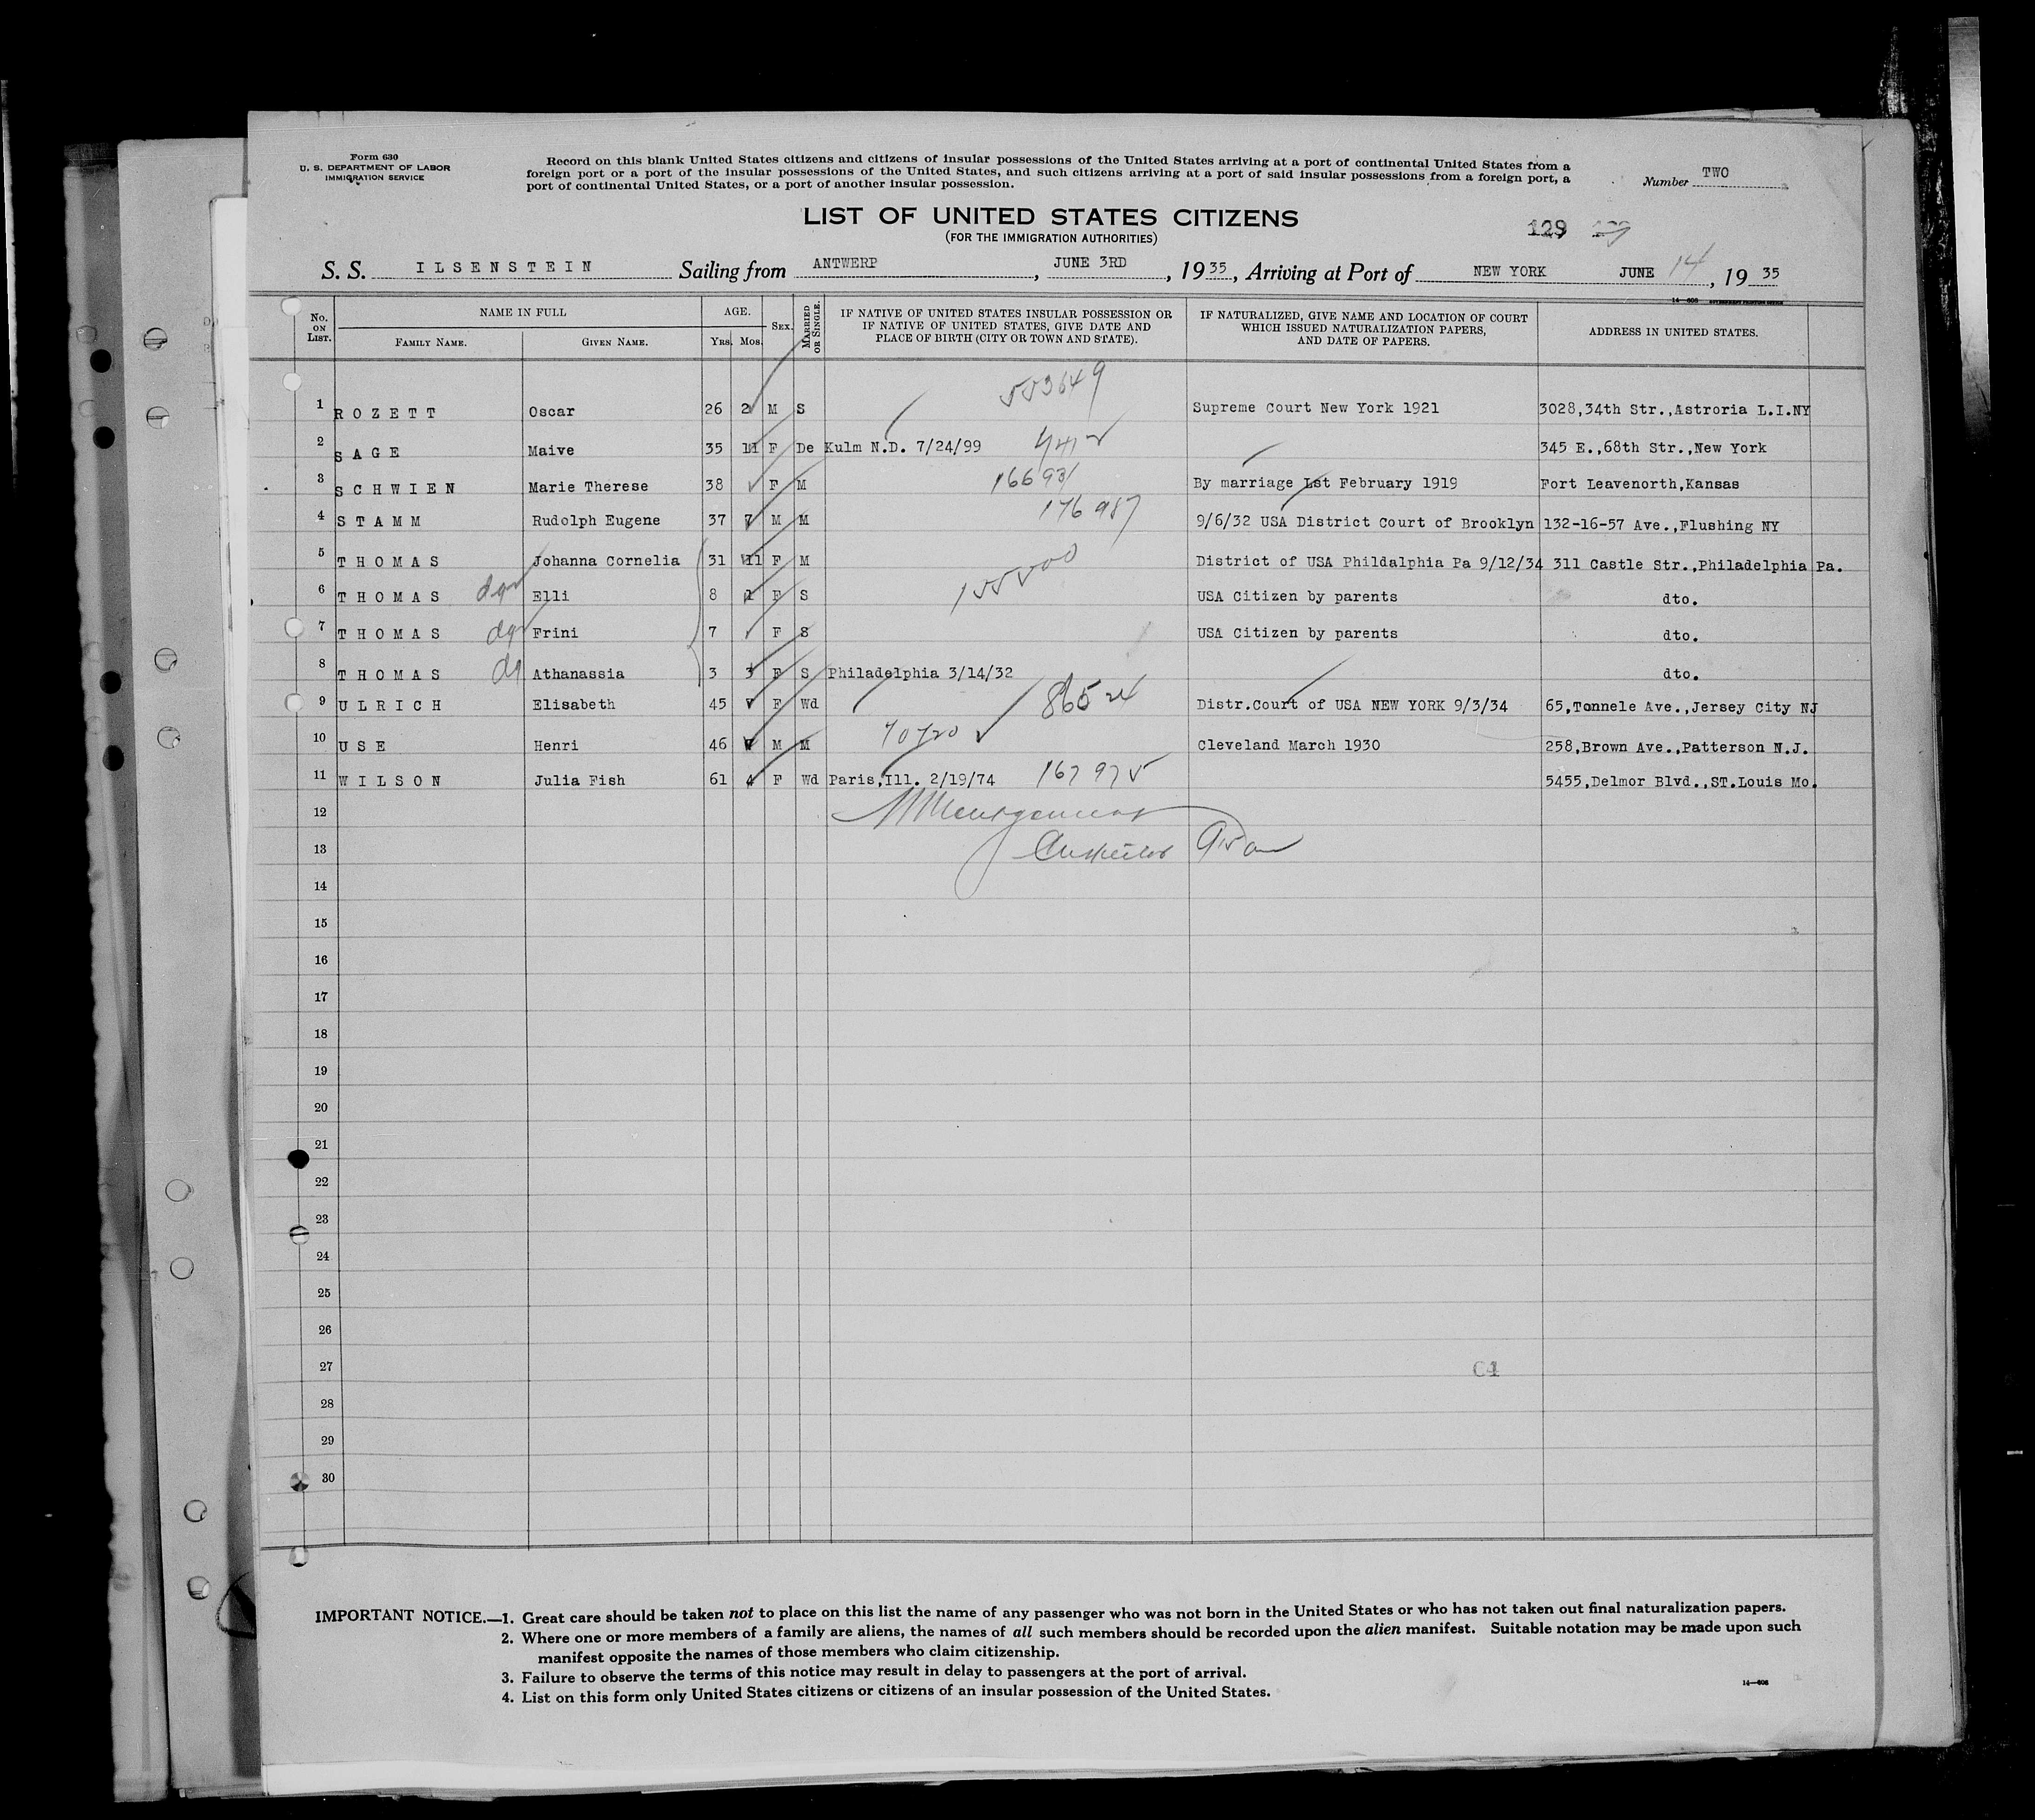 Form 630
U. S. DEPARTMENT OF LABOR
IMMIGRATION SERVICE
Record on this blank United States citizens and citizens of insular possessions of the United States arriving at a port of continental United States from a
foreign port or a port of the insular possessions of the United States, and such citizens arriving at a port of said insular possessions from a foreign port, a
port of continental United States, or a port of another insular possession.
Number TWO
LIST OF UNITED STATES CITIZENS
(FOR THE IMMIGRATION AUTHORITIES)
129
S. S. ILSENSTEIN Sailing from ANTWERP, JUNE 3RD, 1935, Arriving at Port of NEW YORK JUNE 14, 1935
14—608 GOVERNMENT PRINTING OFFICE
No. ON LIST. NAME IN FULL AGE. SEX. MARRIED OR SINGLE. IF NATIVE OF UNITED STATES INSULAR POSSESSION OR IF NATIVE OF UNITED STATES, GIVE DATE AND PLACE OF BIRTH (CITY OR TOWN AND STATE). IF NATURALIZED, GIVE NAME AND LOCATION OF COURT WHICH ISSUED NATURALIZATION PAPERS, AND DATE OF PAPERS. ADDRESS IN UNITED STATES.
FAMILY NAME. GIVEN NAME. YRS. MOS.
553649
1 ROZETT Oscar 26 2 M S Supreme Court New York 1921 3028,34th Str.,Astroria L.I.NY
2 SAGE Maive 35 11 F De Kulm N.D. 7/24/99 345 E.,68th Str.,New York
3 SCHWIEN Marie Therese 38 F M 166931 By marriage 1st February 1919 Fort Leavenorth,Kansas
4 STAMM Rudolph Eugene 37 7 M M 176987 9/6/32 USA District Court of Brooklyn 132-16-57 Ave.,Flushing NY
5 THOMAS Johanna Cornelia 31 11 F M 155500 District of USA Phildalphia Pa 9/12/34 311 Castle Str.,Philadelphia Pa.
6 THOMAS Elli 8 1 F S USA Citizen by parents dto.
7 THOMAS Frini 7 F S USA Citizen by parents dto.
8 THOMAS Athanassia 3 3 F S Philadelphia 3/14/32 dto.
9 ULRICH Elisabeth 45 F Wd 86524 Distr.Court of USA NEW YORK 9/3/34 65,Tonnele Ave.,Jersey City NJ
10 USE Henri 46 M M 70720 Cleveland March 1930 258,Brown Ave.,Patterson N.J.
11 WILSON Julia Fish 61 4 F Wd Paris,Ill. 2/19/74 167975 5455,Delmor Blvd.,ST.Louis Mo.
12
13
14
15
16
17
18
19
20
21
22
23
24
25
26
27
28
29
30
IMPORTANT NOTICE.—1. Great care should be taken not to place on this list the name of any passenger who was not born in the United States or who has not taken out final naturalization papers.
2. Where one or more members of a family are aliens, the names of all such members should be recorded upon the alien manifest. Suitable notation may be made upon such
manifest opposite the names of those members who claim citizenship.
3. Failure to observe the terms of this notice may result in delay to passengers at the port of arrival.
4. List on this form only United States citizens or citizens of an insular possession of the United States.
14—608